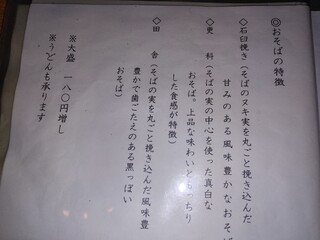 ◎おそばの特徴
◇石臼挽き(そばのヌキ実を丸ごと挽き込んだ
甘みのある風味豊かなおそ
◇更 科(そばの実の中心を使った真白な
おそば。上品な味わいともっちり
した食感が特徴)
◇田 舎(そばの実を丸ごと挽き込んだ風味豊
豊かで歯ごたえのある黒っぽい
おそば)
※大盛 一八〇円増し
※うどんも承ります